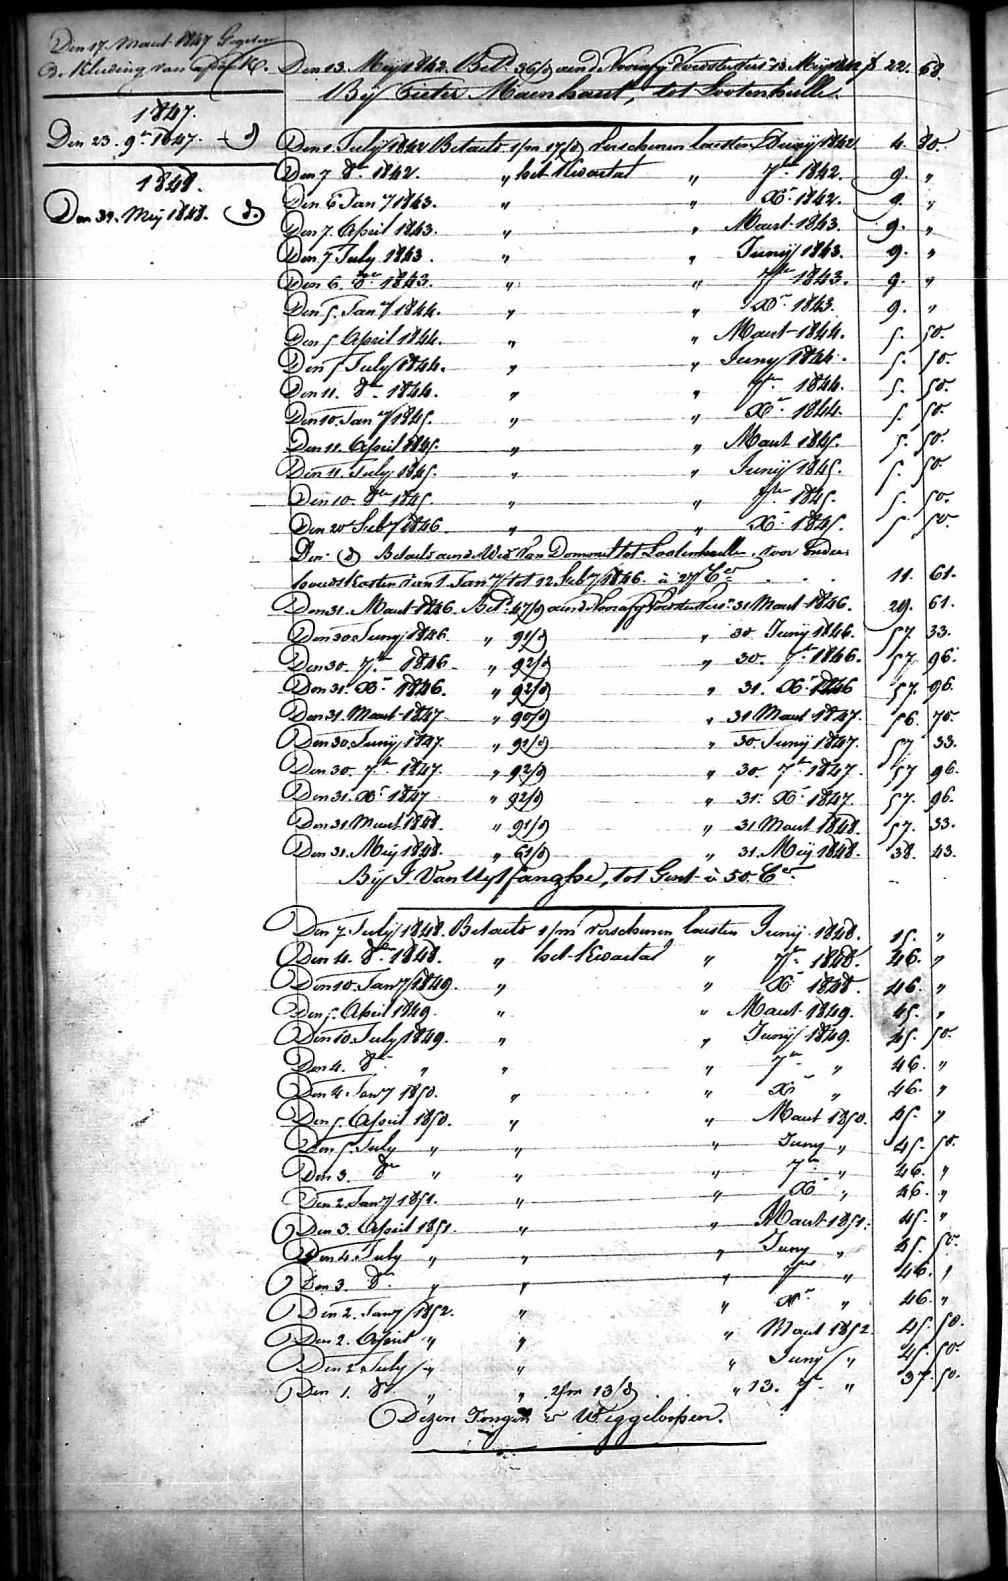 Den 17. Maart 1847 Gegeven
d. Kleding van
1847.
Den 23. 9.r 1847. d)
1848.
Den 31. Mey 1848. d.
Den 13. Mey 1842. Bet.d 36/d aen d Voorafg. Voedsters 13 Mey 1842 f 22. 68.
Bij Pieter Maenhaut, tot Lootenhulle.
Den 1. July 1842 Betaelt 1/m 17/d verschenen laesten Juny 1842 4. 80.
Den 7 8.r 1842. " het Kwartal " 7.r 1842. 9. "
Den 6 Jan.y 1843. " " X.r 1842. 9. "
Den 7. April 1843. " " Maart 1843. 9. "
Den 7 July 1843. " " Juny 1843. 9. "
Den 6. 8.r 1843. " " 7.r 1843. 9. "
Den 5. Jan.y 1844. " " X.r 1843. 9. "
Den 5 April 1844. " " Maart 1844. 5. 50.
Den 5 July 1844. " " Juny 1844. 5. 50.
Den 11. 8.r 1844. " " 7.r 1844. 5. 50.
Den 10. Jan.y 1845. " " X.r 1844. 5. 50.
Den 11. April 1845. " " Maart 1845. 5. 50.
Den 11. July 1845. " " Juny 1845. 5. 50.
Den 10. 8.r 1845. " " 7.r 1845. 5. 50.
Den 20 Feb.y 1846. " " X.r 1845. 5. 50.
Den d) Betaelt aen d. Wed. Van Domont tot Lootenhulle, voor onder
houdskosten van 1. Jan.y tot 12. Feb.y 1846. à 27 C.es 11. 61.
Den 31. Maart 1846. Bet.d 47/d aen d Voorafg. Voedsters 31 Maart 1846. 29. 61.
Den 30 Juny 1846. " 91/d " 30 Juny 1846. 57. 33.
Den 30. 7.r 1846 " 92/d " 30. 7.r 1846. 57. 96.
Den 31. X.r 1846. " 92/d " 31. X.r 1846 57. 96.
Den 31. Maart 1847. " 90/d " 31 Maart 1847. 56. 70.
Den 30. Juny 1847. " 91/d " 30. Juny 1847. 57. 33.
Den 30. 7.r 1847. " 92/d " 30. 7.r 1847. 57 96.
Den 31. X.r 1847 " 92/d " 31. X.r 1847. 57. 96.
Den 31 Maart 1848. " 91/d " 31 Maart 1848. 57. 33.
Den 31. Mey 1848. " 61/d " 31. Mey 1848. 38. 43.
Bij J. Van Uytfanghe, tot Gent à 50. C.es
Den 7 July 1848. Betaelt 1/m verschenen laesten Juny 1848. 15. "
Den 4. 8.r 1848. " het Kwartal " 7.r 1848. 46. "
Den 10. Jan.y 1849. " " X.r 1848. 46. "
Den 5. April 1849. " " Maart 1849. 45. "
Den 10. July 1849. " " Juny 1849. 45. 50.
Den 4. 8.r " " " 7.r " 46. "
Den 4 Jan.y 1850. " " X.r " 46. "
Den 5. April 1850. " " Maart 1850. 45. "
Den 5. July " " " Juny " 45. 50.
Den 3. 8.r " " " 7.r " 46. "
Den 2. Jan.y 1851. " " X.r " 46. "
Den 3. April 1851. " " Maart 1851. 45. "
Den 4. July " " " Juny " 45. 50.
Den 3. 8.r " " " 7.r " 46. "
Den 2. Jan.y 1852. " " X.r " 46. "
Den 2. April " " " Maart 1852. 45. 50.
Den 2 July " " " Juny " 45. 50.
Den 1. 8.r " " 2/m 13/d " 13. 7.r " 37. 50.
Dezen Jongen is Weggeloopen.